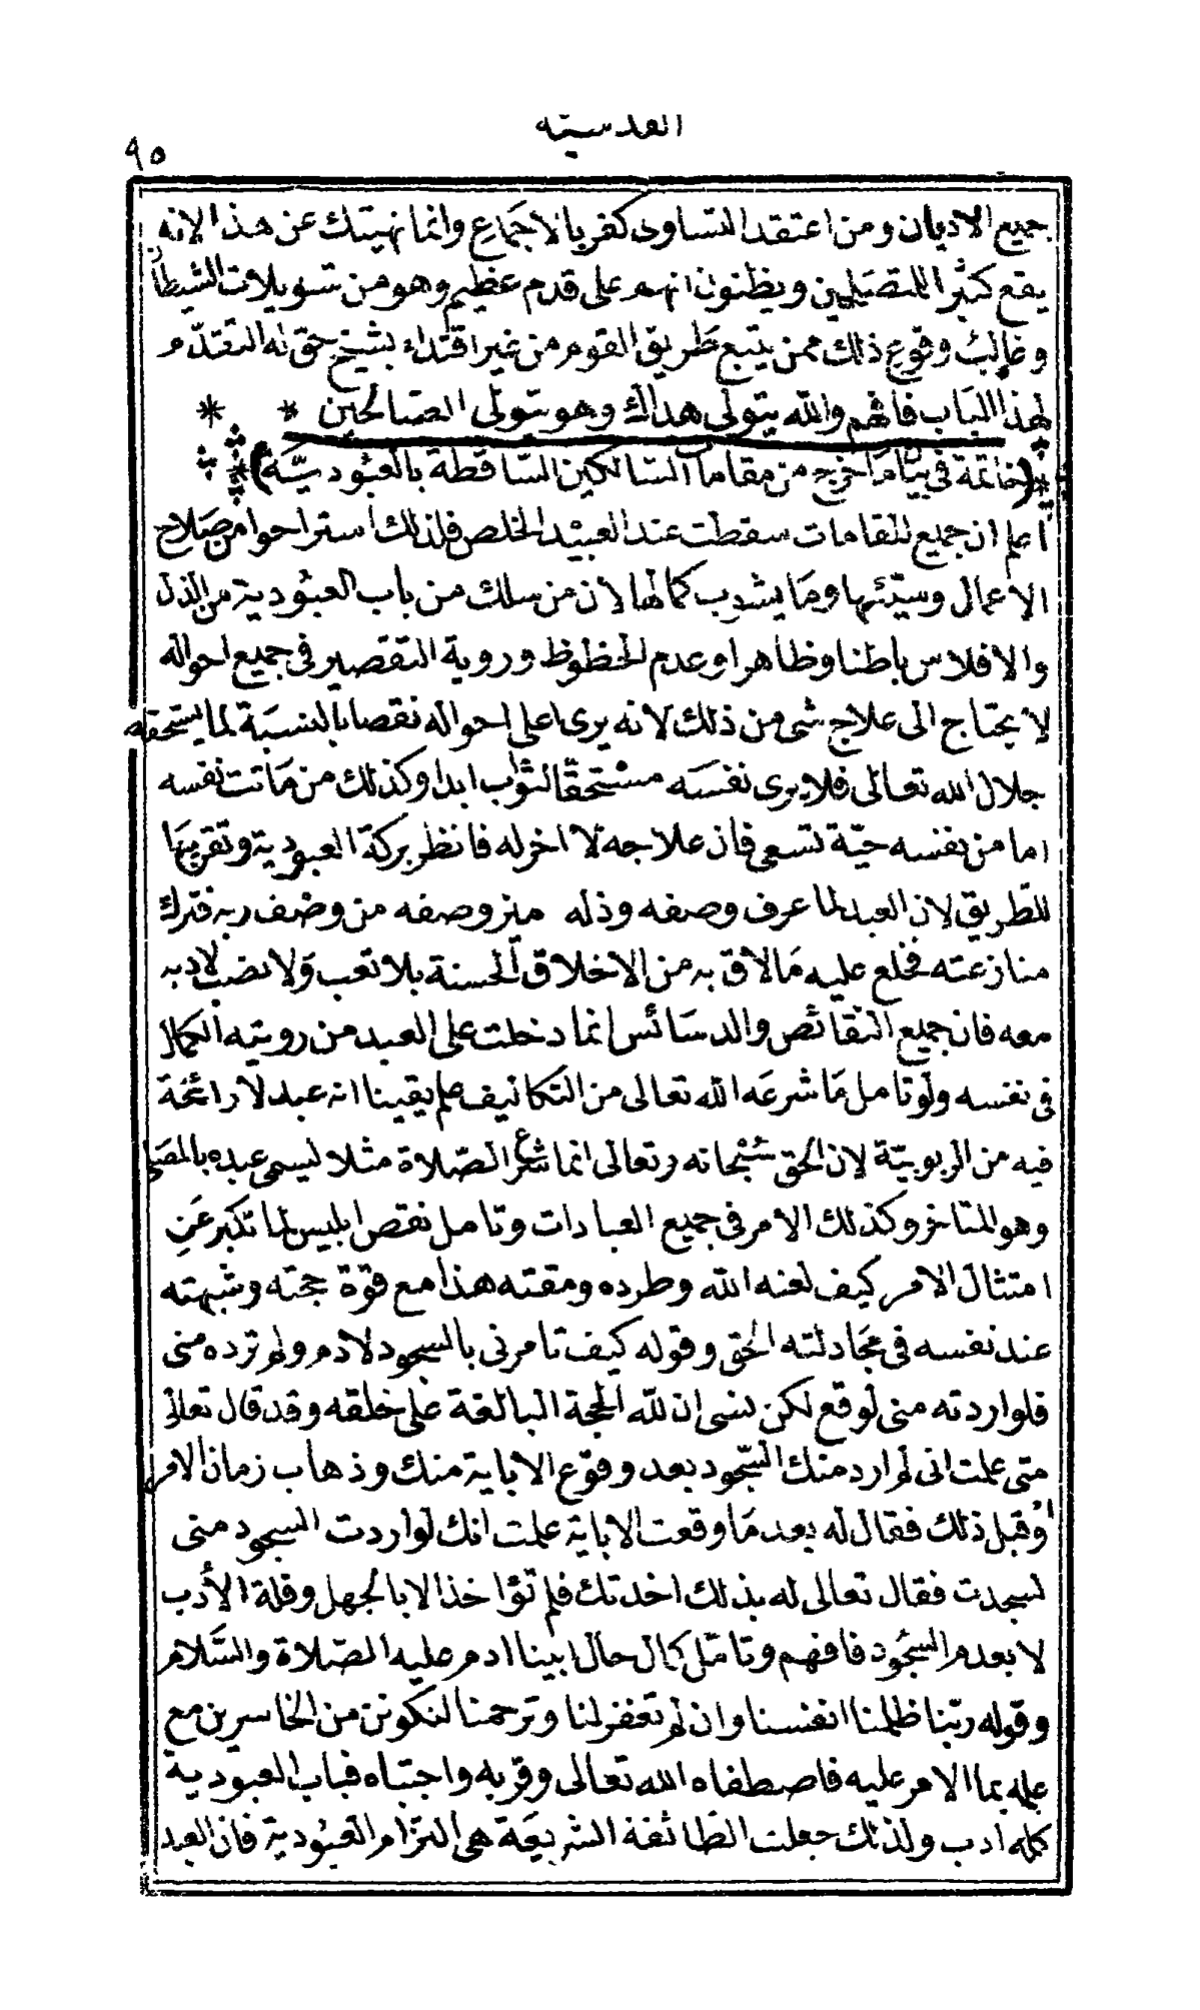 القدسية
٩٥
جميع الاديان ومن اعتقد التساوى كفر بالاجماع وانما نهيتك عن هذا لانه
يقع كثيرا للمتصلين ويظنون انهم على قدم عظيم وهو من تسويلات الشيطان
وغالب وقوع ذلك ممن يتبع طريق القوم من غير اقتداء بشيخ حق له التقدم
لهذا الباب فافهم والله يتولى هداك وهو يتولى الصالحين
(خاتمة فى بيان ما خرج من مقامات السالكين الساقطة بالعبودية)
اعلم ان جميع المقامات سقطت عند العبيد الخلص فلذلك استراحوا من صلاح
الاعمال وسيئها وما يشوب كمالها لان من سلك من باب العبودية من الذل
والافلاس باطنا وظاهرا وعدم الحظوظ وروية التقصير فى جميع احواله
لا يحتاج الى علاج شى من ذلك لانه يرى اعلى احواله نقصا بالنسبة لما يستحقه
جلال الله تعالى فلا يرى نفسه مستحقا لثواب ابدا وكذلك من ماتت نفسه
اما من نفسه حية تسعى فان علاجه لا اخر له فانظر بركة العبودية وتقريبها
للطريق لان العبد لما عرف وصفه وذله ميز وصفه من وصف ربه فترك
منازعته فخلع عليه ما لاق به من الاخلاق الحسنة بلا تعب ولا نصب لادبه
معه فان جميع النقائص والدسائس انما دخلت على العبد من رويته الكمال
فى نفسه ولو تامل ما شرعه الله تعالى من التكاليف علم يقينا انه عبد لا رائحة
فيه من الربوبية لان الحق سبحانه وتعالى انما شرع الصلاة مثلا ليسمى عبده بالمصلى
وهو المتاخر وكذلك الامر فى جميع العبادات وتامل نقص ابليس لما تكبر عن
امتثال الامر كيف لعنه الله وطرده ومقته هذا مع قوة حجته وشبهته
عند نفسه فى مجادلته الحق وقوله كيف تامرنى بالسجود لادم ولم ترده منى
فلو اردته منى لوقع لكن نسى ان لله الحجة البالغة على خلقه وقد قال تعالى
متى علمت انى لم ارد منك السجود بعد وقوع الاباية منك وذهاب زمان الامر
او قبل ذلك فقال له بعد ما وقعت الاباية علمت انك لو اردت السجود منى
لسجدت فقال تعالى له بذلك اخدتك فلم تؤاخذ الا بالجهل وقلة الأدب
لا بعدم السجود فافهم وتامل كمال حال ابينا ادم عليه الصلاة والسلام
وقوله ربنا ظلمنا انفسنا وان لم تغفر لنا وترحمنا لنكونن من الخاسرين مع
علمه بما الامر عليه فاصطفاه الله تعالى وقربه واجتباه فباب العبودية
كله ادب ولذلك جعلت الطائفة الشريعة هى التزام العبودية فان العبد